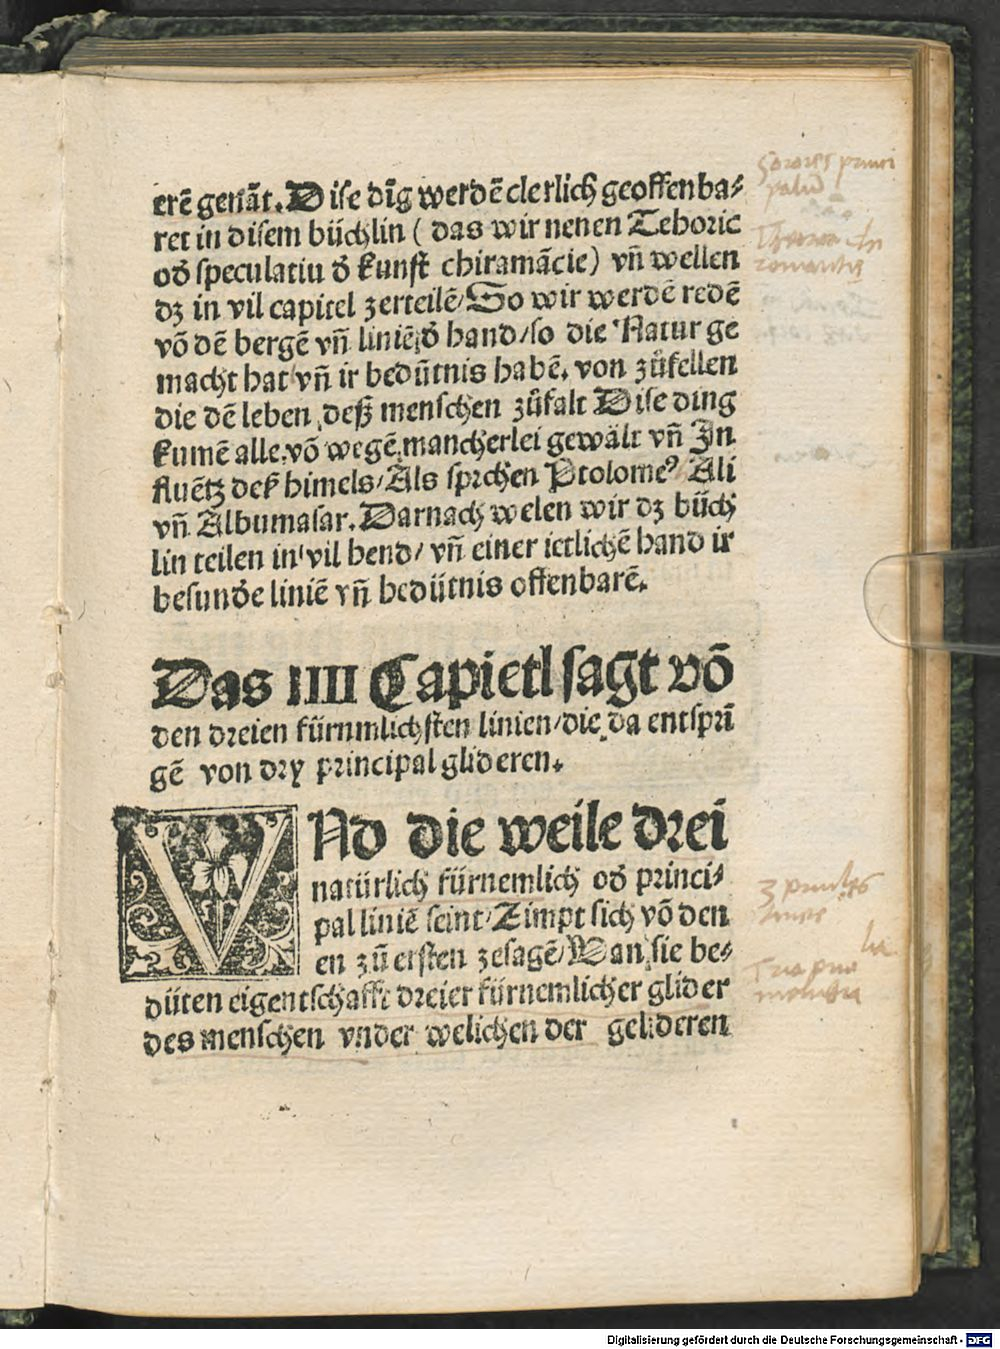 erē genāt. Dise dīg werdē clerlich geoffenba⸗
ret in disem büchlin ( das wir nenen Tehoric
od̄ speculatiu d̄ kunst chiramācie) vn̄ wellen
dz in vil capitel zerteilē/ So wir werdē redē
vō dē bergē vn̄ liniē d̄ hand/so die Natur ge
macht hat vn̄ ir bedūtnis habē. von zůfellen
die dē leben deß menschen zůfalt Dise ding
kumē alle, vō wegē mancherlei gewält vn̄ In
fluētz deß himels/Als sprchen Ptolomeꝰ Ali
vn̄ Albumasar. Darnach welen wir dz büch
lin teilen in vil hend/ vn̄ einer ietlichē hand ir
besund̄e liniē vn̄ bedütnis offenbarē.
Das IIII Capietl sagt vō
den dreien fürnmlichsten linien/die da entsprī
gē von dry principal glideren.
VNd die weile drei
natürlich fürnemlich od̄ princi⸗
pal liniē seint/Zimpt sich vō den
en zů ersten zesagē/Wan sie be⸗
düten eigentschafft dreier fürnemlicher glider
des menschen vnder welichen der gelideren
Digitalisierung gefördert durch die Deutsche Forschungsgemeinschaft - DFG